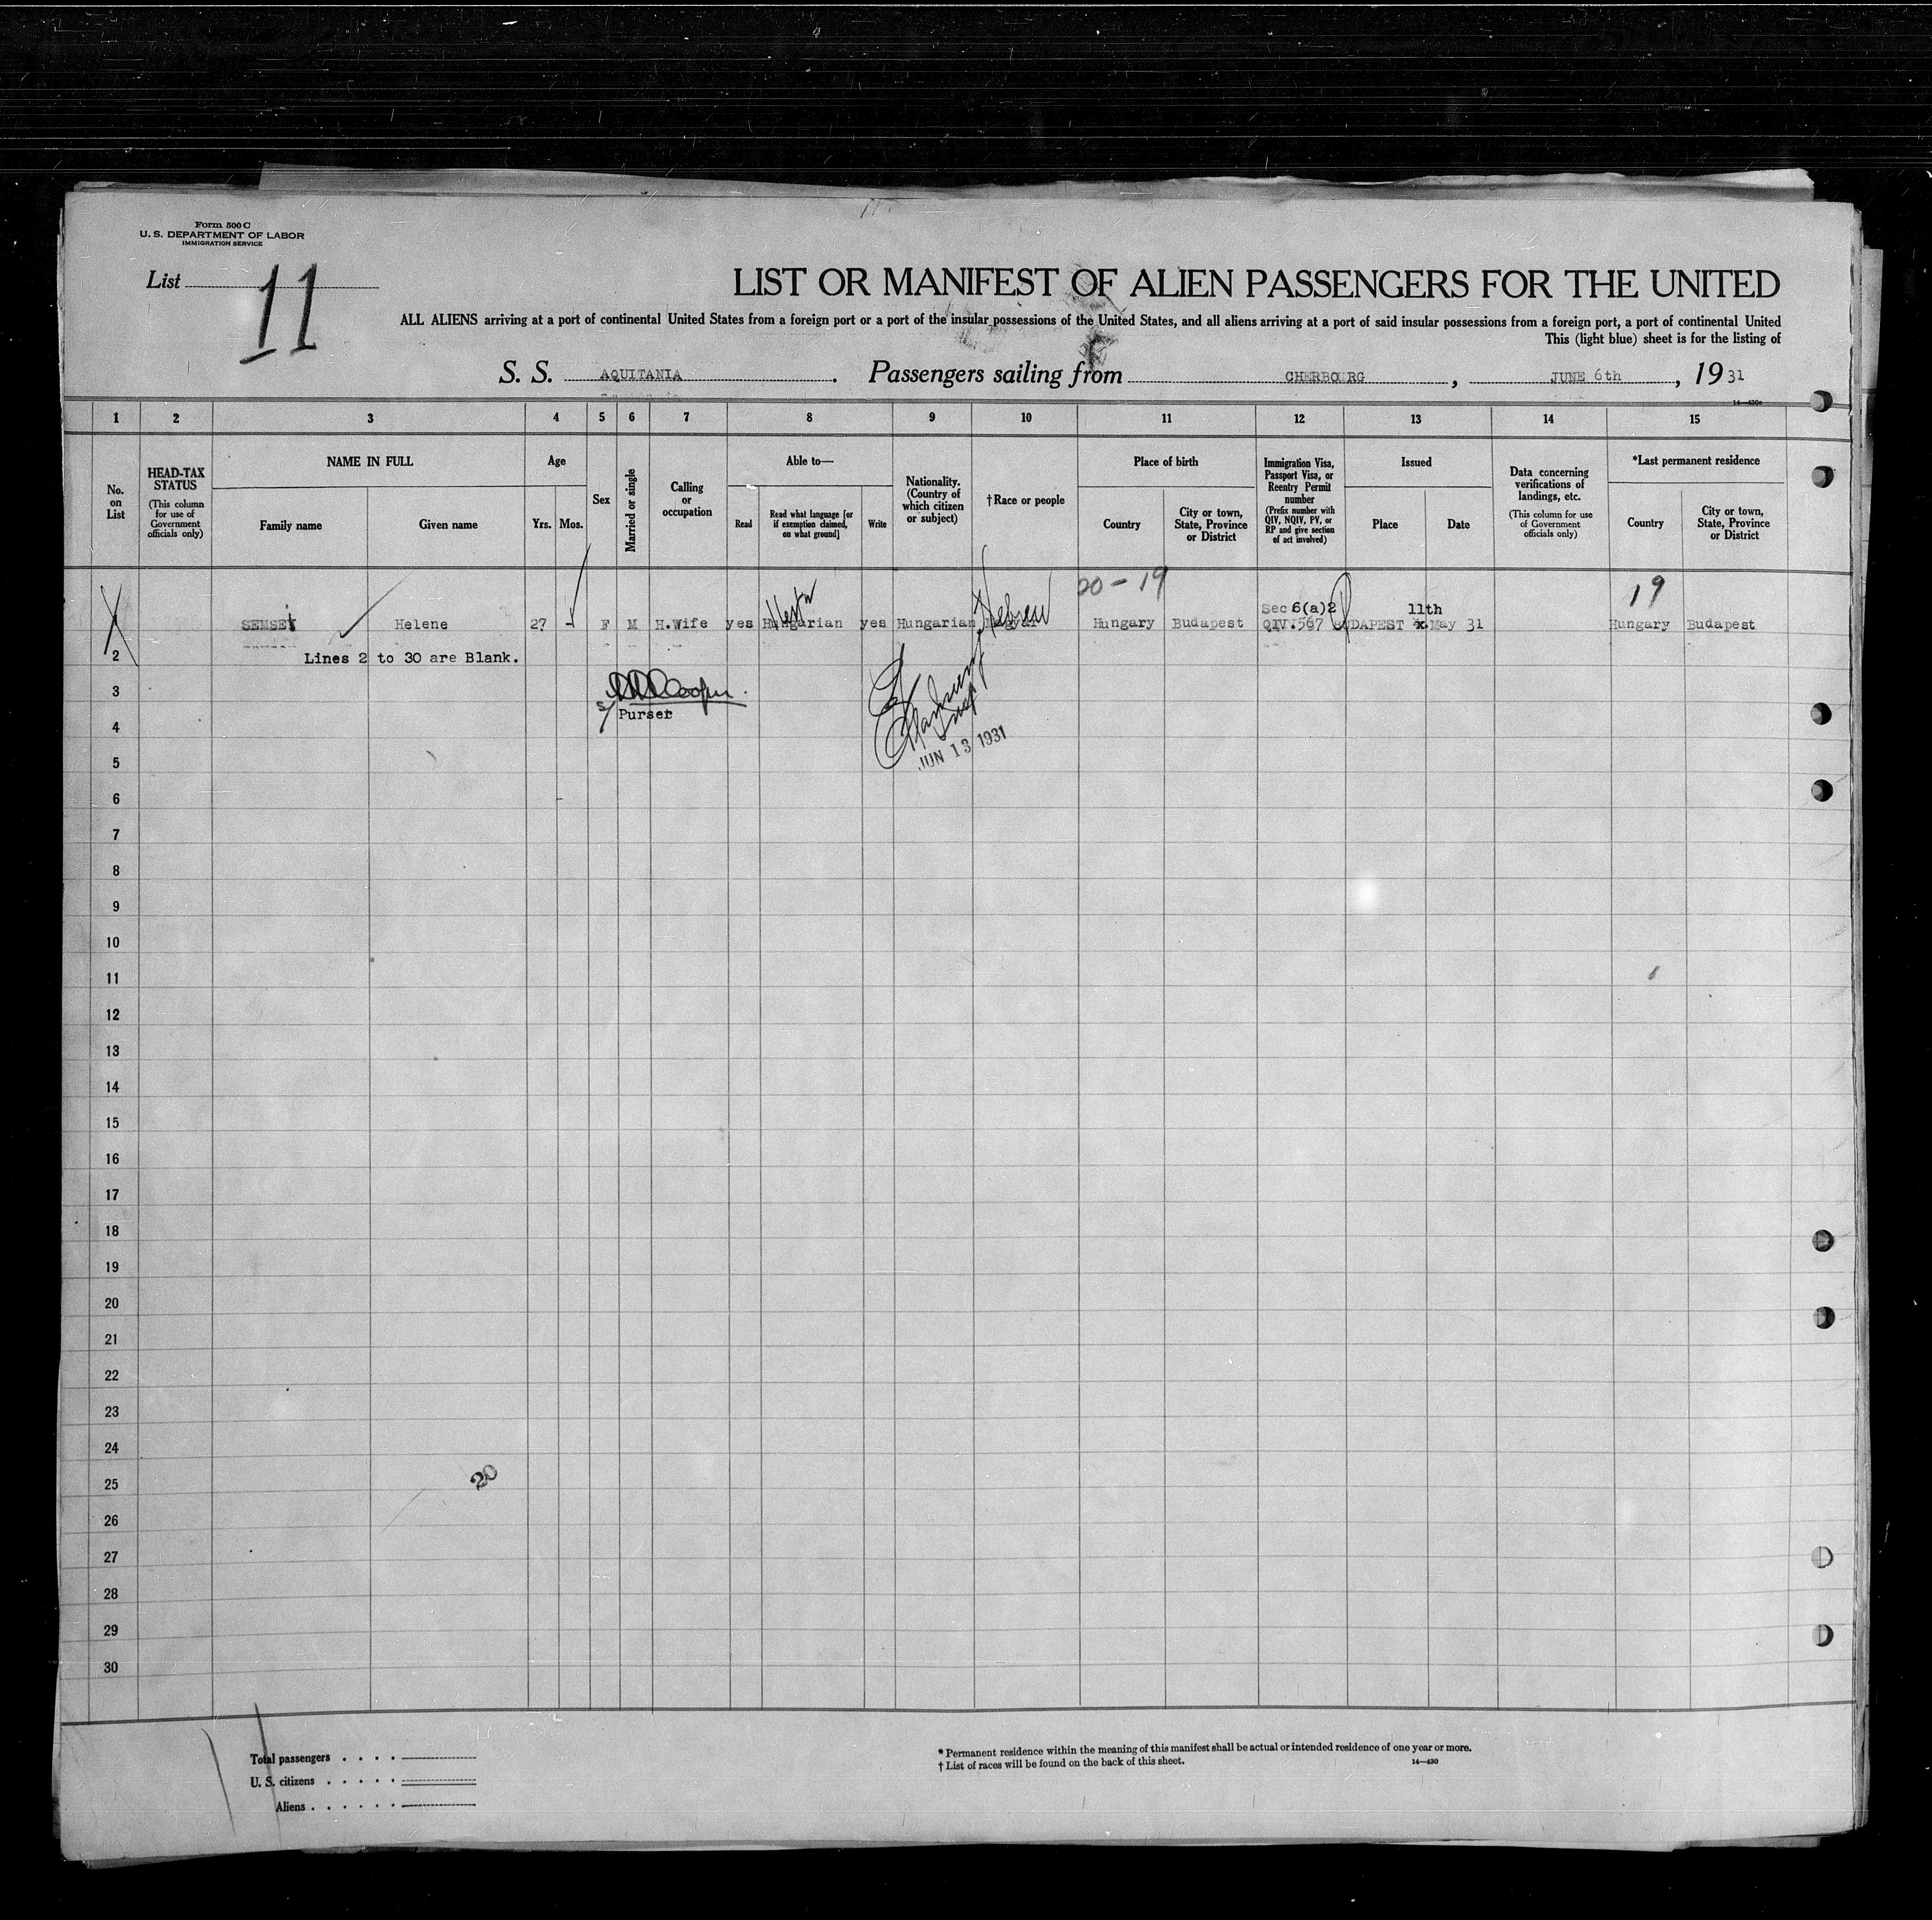 Form 500 C
U. S. DEPARTMENT OF LABOR
IMMIGRATION SERVICE
List 11
LIST OR MANIFEST OF ALIEN PASSENGERS FOR THE UNITED
ALL ALIENS arriving at a port of continental United States from a foreign port or a port of the insular possessions of the United States, and all aliens arriving at a port of said insular possessions from a foreign port, a port of continental United
This (light blue) sheet is for the listing of
S. S. AQUITANIA. Passengers sailing from CHERBOURG, JUNE 6th, 1931
14—430c
1 2 3 4 5 6 7 8 9 10 11 12 13 14 15
No. on List
HEAD-TAX STATUS (This column for use of Government officials only)
NAME IN FULL
Family name Given name
Age
Yrs. Mos.
Sex
Married or single
Calling or occupation
Able to—
Read Read what language [or if exemption claimed, on what ground] Write
Nationality. (Country of which citizen or subject)
†Race or people
Place of birth
Country City or town, State, Province or District
Immigration Visa, Passport Visa, or Reentry Permit number (Prefix number with QIV, NQIV, PV, or RP and give section of act involved)
Issued
Place Date
Data concerning verifications of landings, etc. (This column for use of Government officials only)
*Last permanent residence
Country City or town, State, Province or District
20 - 19 19
Sec 6(a)2 11th
SEMSEY Helene 27 F M H.Wife yes Hungarian yes Hungarian Magyar Hebrew Hungary Budapest QIV.567 BUDAPEST May 31 Hungary Budapest
2 Lines 2 to 30 are Blank.
3 Cooper.
4 s/ Purser
JUN 13 1931
5
6
7
8
9
10
11
12
13
14
15
16
17
18
19
20
21
22
23
24
20
25
26
27
28
29
30
Total passengers . . . .
U. S. citizens . . . . .
Aliens . . . . . .
* Permanent residence within the meaning of this manifest shall be actual or intended residence of one year or more.
† List of races will be found on the back of this sheet. 14—430